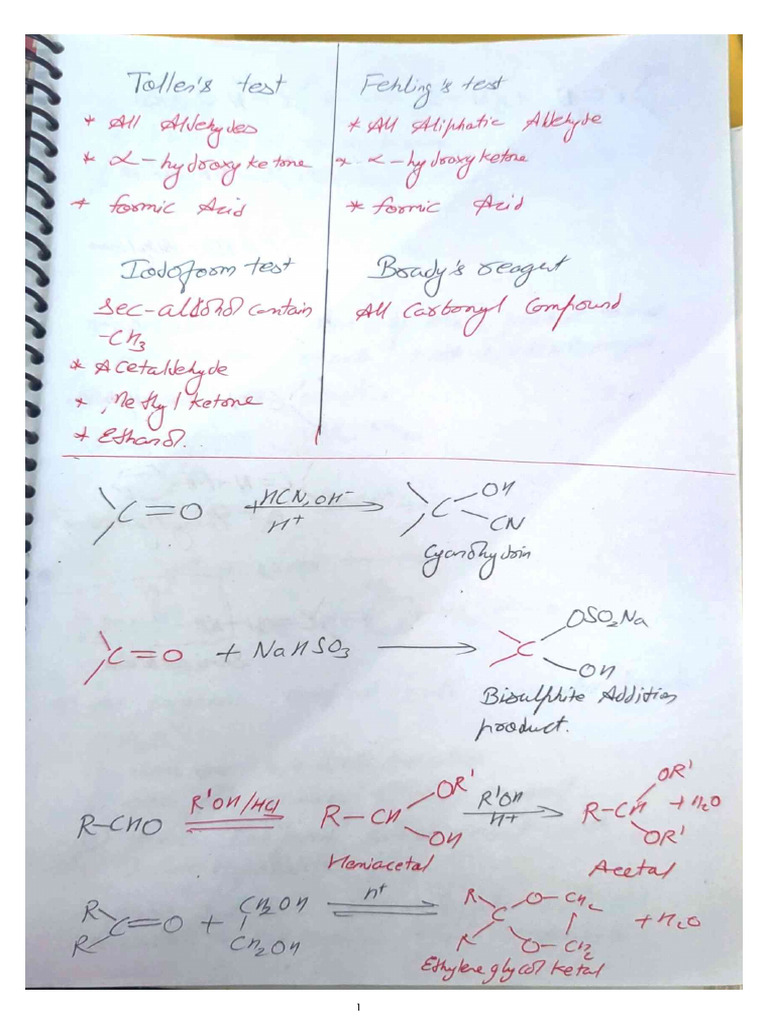 Tollen's test
* All Aldehydes
* α-hydroxy ketone
* formic Acid
Fehling's test
* All Aliphatic Aldehyde
* α-hydroxy ketone
* formic Acid
Iodoform test
Sec-alcohol contain
-CH3
* Acetaldehyde
* Methyl ketone
* Ethanol.
Brady's reagent
All Carbonyl Compound
C=O + HCN, OH⁻
H⁺
C
OH
CN
Cyanohydrin
C=O + NaHSO3
C
OSO2Na
OH
Bisulphite Addition
product.
R-CHO
R'OH/HCl
R-CH
OR'
OH
Hemiacetal
R'OH
H+
R-CH
OR'
OR'
+ H2O
Acetal
R
R
C=O +
CH2OH
CH2OH
H+
R
R
C
O-CH2
O-CH2
+ H2O
Ethylene glycol ketal
1